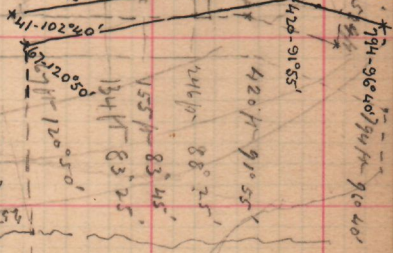 41-102°40'
67-120°50'
420-91°55'
794-96°40'
794 ft 96°40'
420 ft 91°55'
246 ft 88°25'
155 ft 83°45'
134 ft 83°25'
67 ft 120°50'